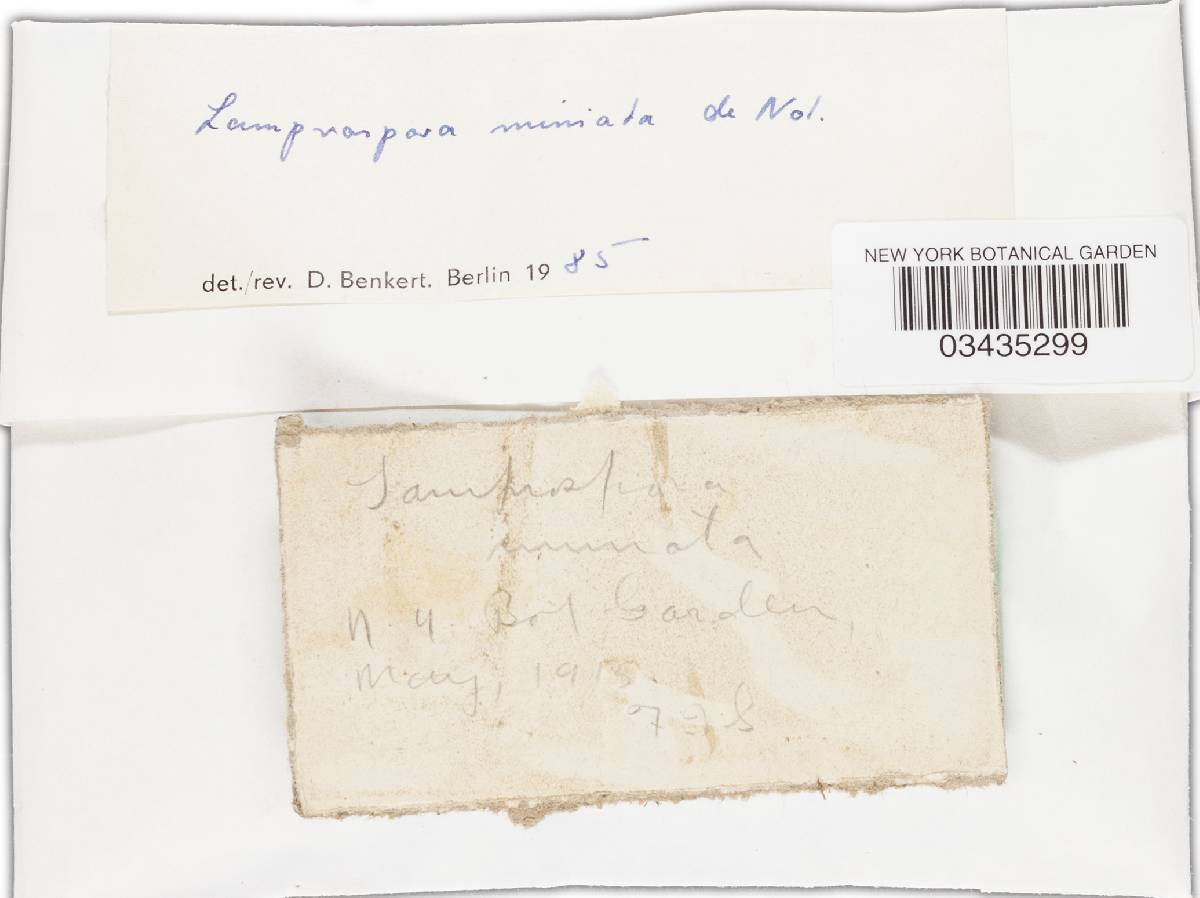 Lamprospora miniata de Not.
det./rev. D. Benkert. Berlin 19 85
NEW YORK BOTANICAL GARDEN
03435299
Lamprospora
miniata
N. Y. Bot Garden,
May, 1915.
F J S